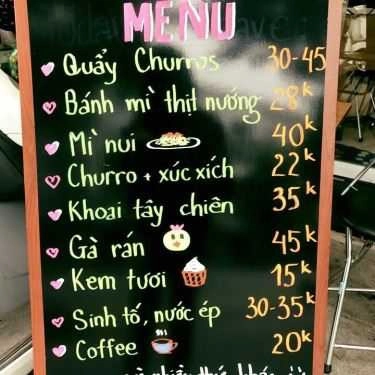 MENU
Quẩy Churros 30-45
Bánh mì thịt nướng 28k
Mì nui 40k
Churro + xúc xích 22k
Khoai tây chiên 35k
Gà rán 45k
Kem tươi 15k
Sinh tố, nước ép 30-35k
Coffee 20k